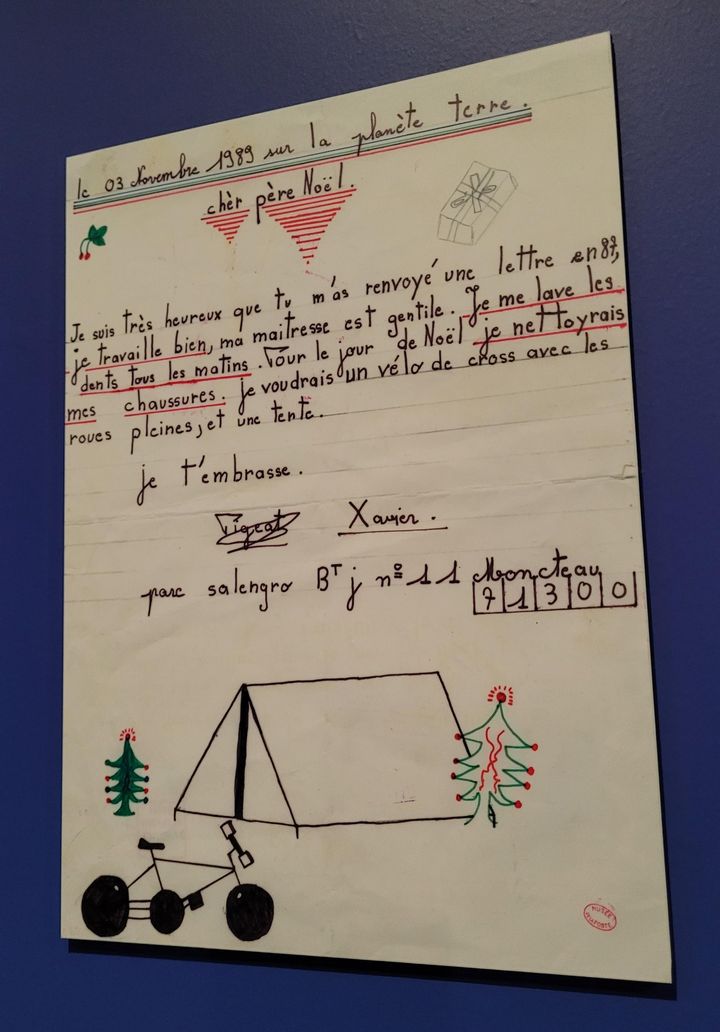 le 03 Novembre 1989 sur la planète terre.
chèr père Noël.
Je suis très heureux que tu m'as renvoyé une lettre en 87,
je travaille bien, ma maitresse est gentile. Je me lave les
dents tous les matins. Pour le jour de Noël je nettoyrais
mes chaussures. je voudrais un vélo de cross avec les
roues pleines, et une tente.
je t'embrasse.
Xavier.
parc salengro BT j nº 11 Montceau
71300
MUSÉE